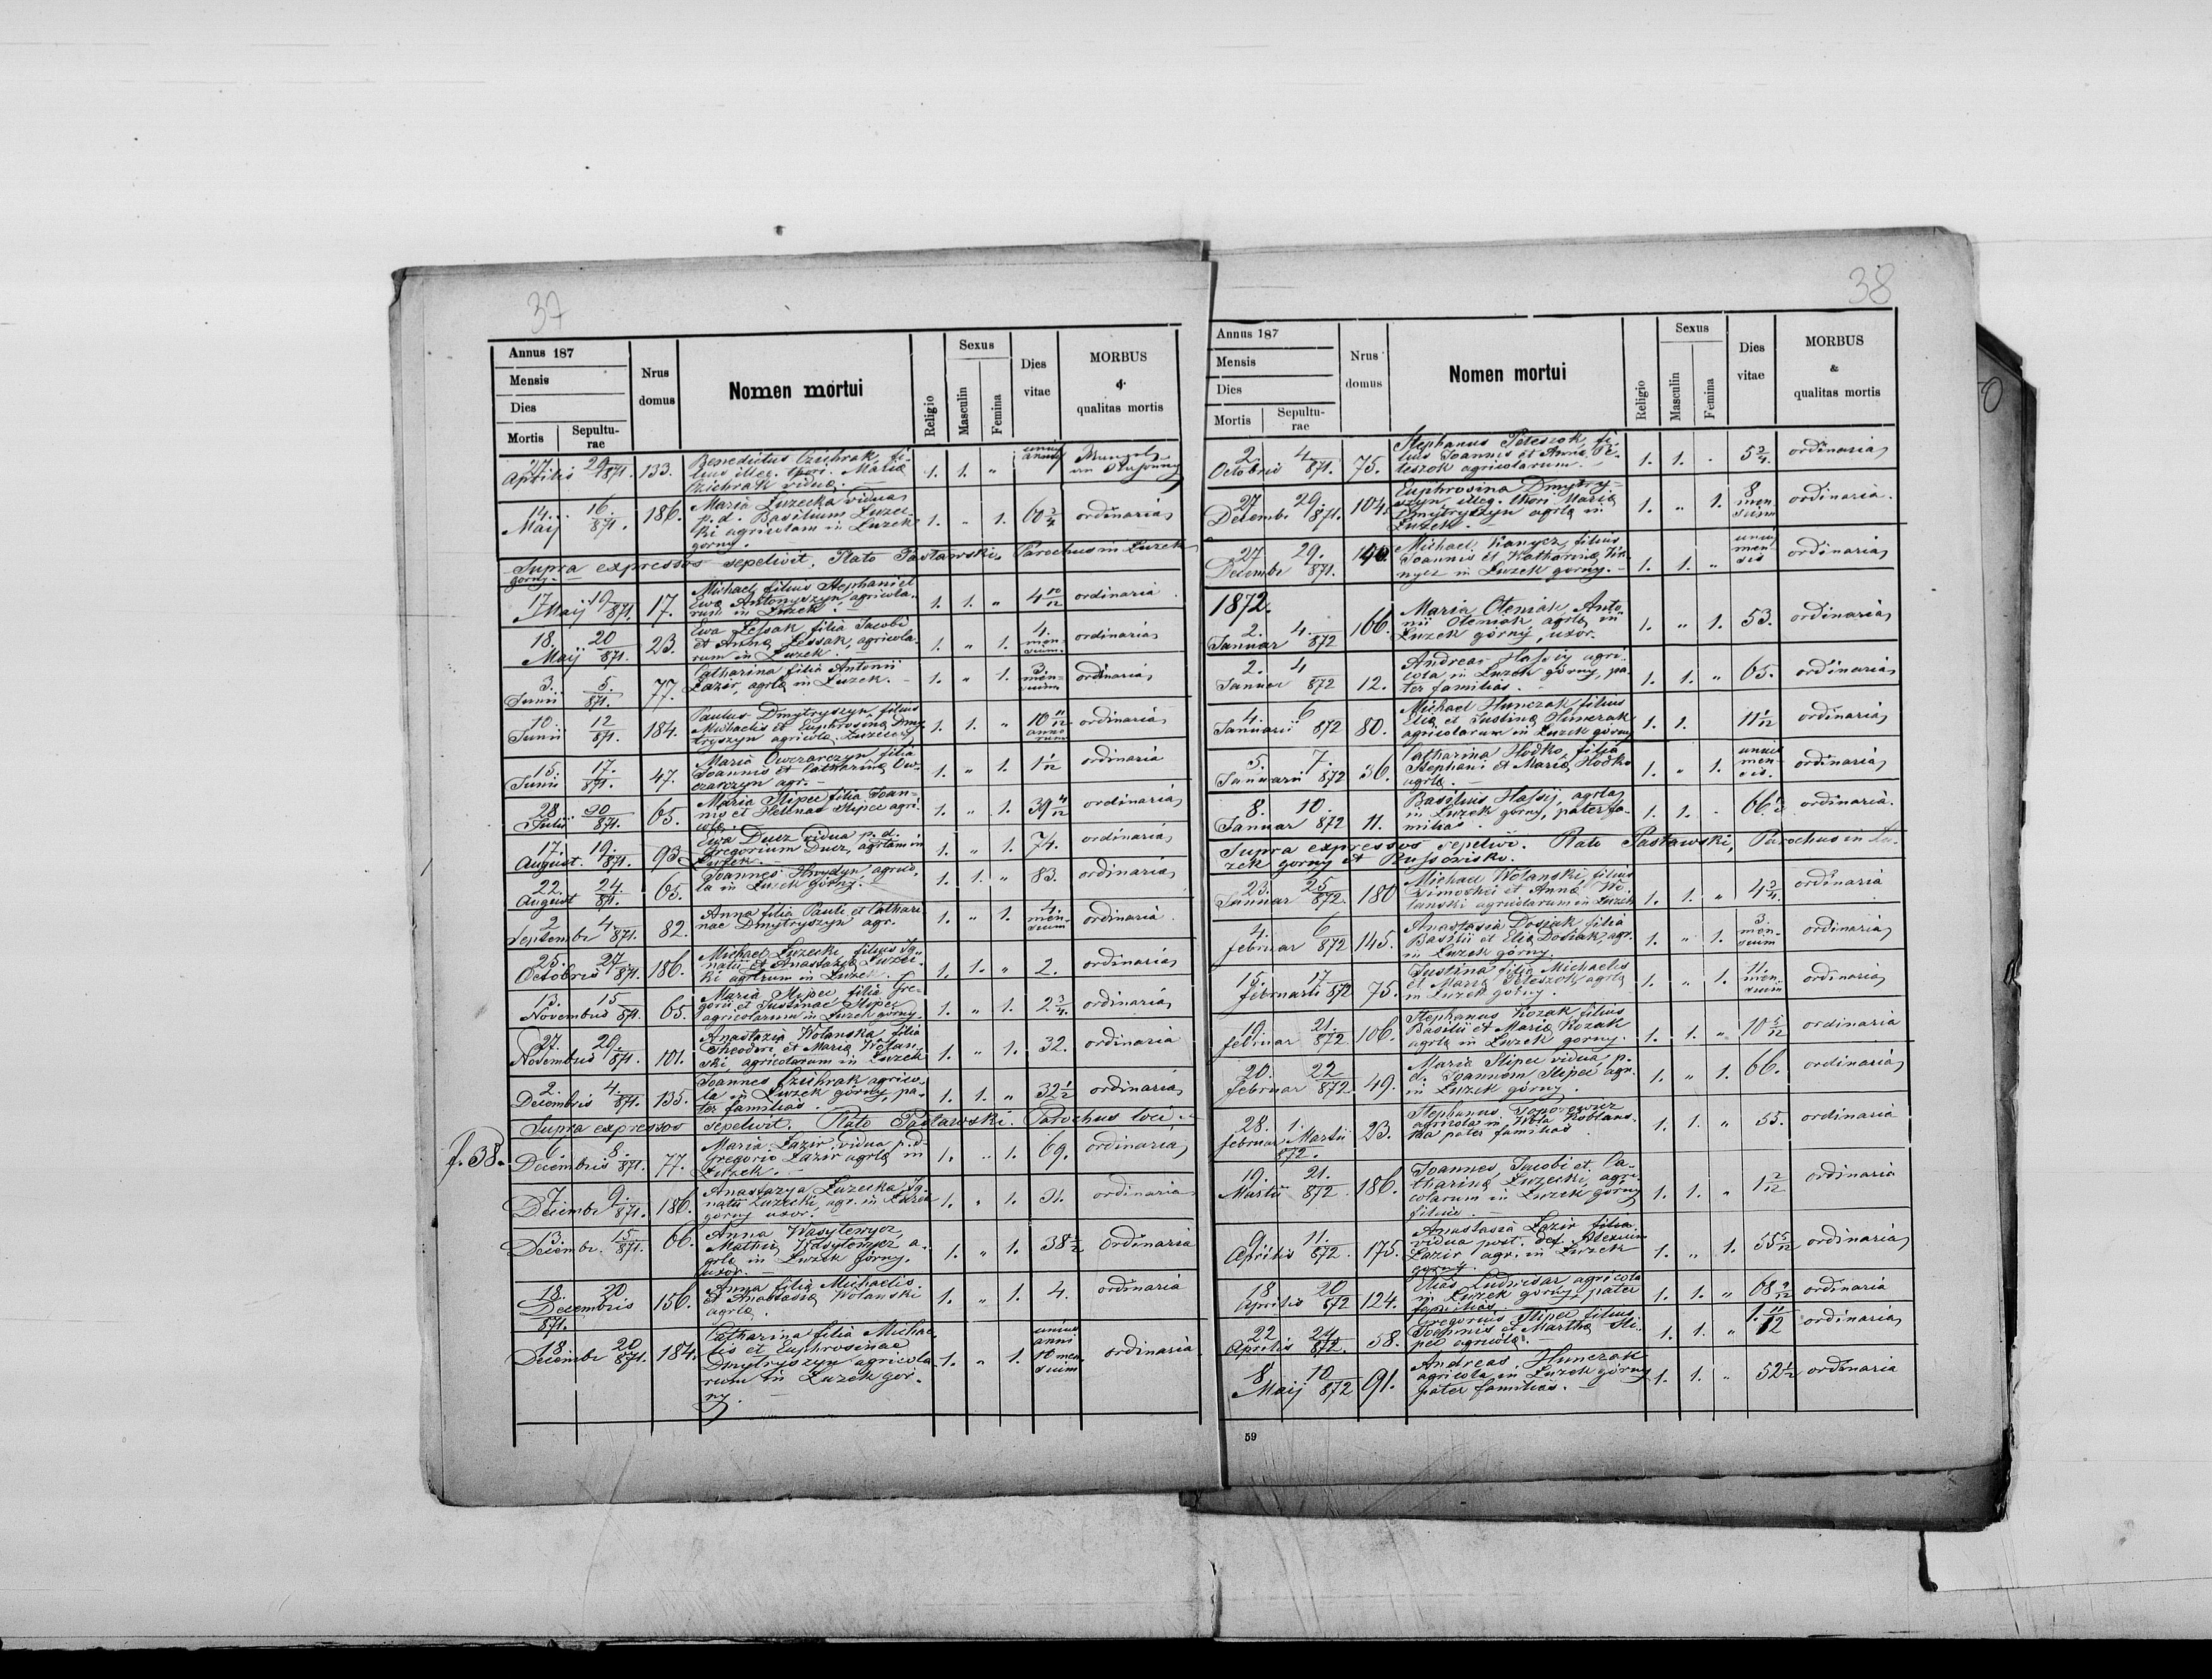 37
Annus 187
Mensis
Dies
Mortis
Sepultu-
rae
Nrus
domus
Nomen mortui
Religio
Sexus
Masculin
Femina
Dies
vitae
MORBUS
&
qualitas mortis
27. Aprilis 29/871. 133. Benedictus Czichrak, fi-
lius illeg. thori Mariæ
Czichrak viduæ. 1. 1. „ unius
14. Maij 16./871. 186. Maria Łuzecka vidua
p. d. Basilium Łuzec-
ki agricolam in Łuzek
gorny. 1. „ 1. 60 3/4 ordinaria
Supra expressos sepelivit. Plato Pasławski, Parochus in Łuzek
gorny.
17 Maij 19/871. 17. Michael filius Stephani et
Ewæ Antonyszyn, agricola-
rum in Łuzek. 1. 1. „ 4 10/12 ordinaria
18. Maij 20/871. 23. Ewa Lessak, filia Jacobi
et Annæ Lessak, agricola-
rum in Łuzek. 1. „ 1. 4. men-
sium. ordinaria
3. Junii 5./871. 77. Catharina filia Antonii
Łazir, agrlæ in Łuzek. 1. „ 1. 3. men-
sium ordinaria
10. Junii 12/871. 184. Paulus Dmytryszyn, filius
Michaelis et Euphrosinæ Dmy
tryszyn agricolæ 1. 1. „ 10 11/12
anno
rum ordinaria
15. Junii 17./871. 47. Maria Owczarczyn, filia
Joannis et Catharinæ Ow-
czarczyn agr. 1. „ 1. 1 1/12 ordinaria
28 Julii 20/871. 65. Maria Stipec filia Joan-
nis et Hellenæ Stipec agri-
colæ. 1. „ 1. 39 4/12 ordinaria
17. August. 19./871. 93. Ewa Ducz vidua p. d.
Gregorium Ducz, agrlam in
Łuzek. 1. „ 1. 74. ordinaria
22. August 24/871. 65. Joannes Hrydyn, agrico-
la in Łuzek górny. 1. 1. „ 83. ordinaria
2 Septembr 4/871. 82. Anna filia Pauli et Cathari
nae Dmytryszyn agr. 1. „ 1. 4. men-
sium ordinaria
25. Octobris 27./871. 186. Michael Łuzecki, filius Ig-
natii et Anastaziæ Łuzec-
ki agrlrum in Łuzek. 1. 1. „ 2. ordinaria
13. Novembris 15/871. 65. Maria Stipec filia Gre-
gorii et Justinae Stipec
agricolarum in Łuzek górny. 1. „ 1. 2 3/4. ordinaria
27. Novembris 29./871. 101. Anastazia Wolanska, filia
Theodori et Mariæ Wolan-
ski, agricolarum in Łuzek 1. „ 1. 32. ordinaria
2. Decembris 4/871. 135. Joannes Czichrak agrico-
la in Łuzek górny, pa-
ter familias. 1. 1. „ 32 1/2 ordinaria
Supra expressos sepelivit. Plato Pasławski. Parochus loci
f. 38.
6 Decembris 8./871. 77. Maria Łazir vidua p. d.
Gregorio Łazir agrlæ in
Łuzek. 1. „ 1. 69. ordinaria
7 Decembr 9./871. 186. Anastazya Łuzecka Ig-
natii Łuzecki, agr. in Łuzek
górny uxor. 1. „ 1. 31. ordinaria
13. Decembr. 15/871. 66. Anna Wasylewycz,
Mathii Wasylewycz a-
grlæ in Łuzek górny.
uxor. 1. „ 1. 38 1/2 ordinaria
18. Decembris 20
871. 156. Anna filia Michaelis
et Anastasiæ Wolanski
agrlæ. 1. „ 1. 4. ordinaria
18 Decembr 20/871. 184. Catharina filia Michae-
lis et Euphrosinae
Dmytryszyn agricola-
rum in Łuzek gór-
ny. 1. „ 1. unius
anni
10 men
sium ordinaria
38
Annus 187
Mensis
Dies
Mortis
Sepultu-
rae
Nrus
domus
Nomen mortui
Religio
Sexus
Masculin
Femina
Dies
vitae
MORBUS
&
qualitas mortis
2. Octobris 4/871. 75. Stephanus Peleszok, fi-
lius Joannis et Annæ Pe-
leszok agricolarum. 1. 1. . 5 3/4. ordinaria
27 Decembr 29./871. 104. Euphrosina Dmytry-
szyn, illeg. thori Mariæ
Dmytryszyn agrlæ in
Łuzek. 1. „ 1. 8 men
sium ordinaria.
27 Decembr 29./871. Michael filius
Joannis et Katharinæ
in Łuzek gorny. 1. 1. „ unius
men-
sis ordinaria
1872.
2. Januar 4./872 166. Maria Oleniak, Anto-
nii Oleniak, agrlæ in
Łuzek górny, uxor. 1. „ 1. 53. ordinaria
2. Januar 4/872 12. Andreas Hassij agri-
cola in Łuzek górny, pa-
ter familias. 1. 1. „ 65. ordinaria
4. Januarii 6/872 80. Michael Hunczak filius
Eliæ et Justinæ Hunczak
agricolarum in Łuzek górny 1. 1. 11 1/12 ordinaria
5. Januarii 7./872 36. Catharina Hodko, filia
Stephani et Mariæ Hodko
agrlæ. 1. „ 1. unius
men-
sis. ordinaria
8. Januar 10./872 11. Basilius Hassij, agrla
in Łuzek górny, pater fa-
milias. 1. 1. . ordinaria.
Supra expressos sepelivi. Plato Pasławski, Parochus in Łu-
zek gorny et Bussowisko.
23. Januar 25/872. 180 Michael Wolanski, filius
Timothei et Annæ Wo-
lanski agricolarum in Łuzek 1. 1. „ 4 3/4. ordinaria
4. februar 6/872 145. Anastasia Dosiak filia
Basilii et Eliæ Dosiak, agr.
in Łuzek górny. 1. „ 1. 3. men-
sium ordinaria
15. februarii 17/872 75. Justina filia Michaelis
et Mariæ Peleszok, agrlæ
in Łuzek górny. 1. „ 1. 11. men-
sium ordinaria
19. februar 21./872 106. Stephanus Kozak filius
Basilii et Mariæ Kozak
agrlæ in Łuzek gorny. 1. 1. „ 10 5/12 ordinaria
20. februar 22/872 49. Maria Stipec vidua p.
d. Joannem Stipec agr.
in Łuzek górny. 1. „ 1. 66. ordinaria
28. februar 1. Martii
872. 23. Stephanus
agricola in Wola Koblans-
ka pater familias 1. 1. „ 55. ordinaria
19. Martii 21./872 186. Joannes, Jacobi et Ca-
tharinæ Łuzecki, agri-
colarum in Łuzek górny
filius. 1. 1. „ 1 2/12 ordinaria
9 Aprilis 11./872. 175. Anastasia Łazir filia
vidua post. def. Alexium
Łazir agr. in Łuzek
gorny. 1. „ 1. 55 5/12 ordinaria
18 Aprilis 20/872 124. agricola
in Łuzek górny pater
familias. 1. 1. „ ordinaria
22 Aprilis 24/872. 58. Gregorius Stipec filius
Joannis et Marthæ Sti-
pec agricolæ. 1. 1. „ 1. 11/12 ordinaria
8 Maij 10/872 91. Andreas Hunczak
agricola in Łuzek górny
pater familias. 1. 1. „ 52 1/2 ordinaria
59